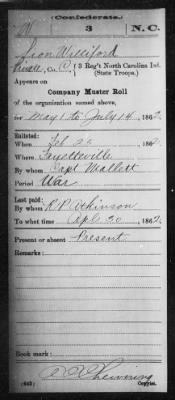 (Confederate.)
W 3 N.C.
Sion Williford
Privt., Co. C, 3 Reg't North Carolina Inf.
(State Troops.)
Appears on
Company Muster Roll
of the organization named above,
for May 1 to July 14, 1862.
Enlisted:
When Feb 25, 1862
Where Fayetteville
By whom Capt Mallett
Period War
Last paid:
By whom R P Atkinson
To what time Apl. 30, 1862
Present or absent Present
Remarks:
Book mark:
(642) Copyist.